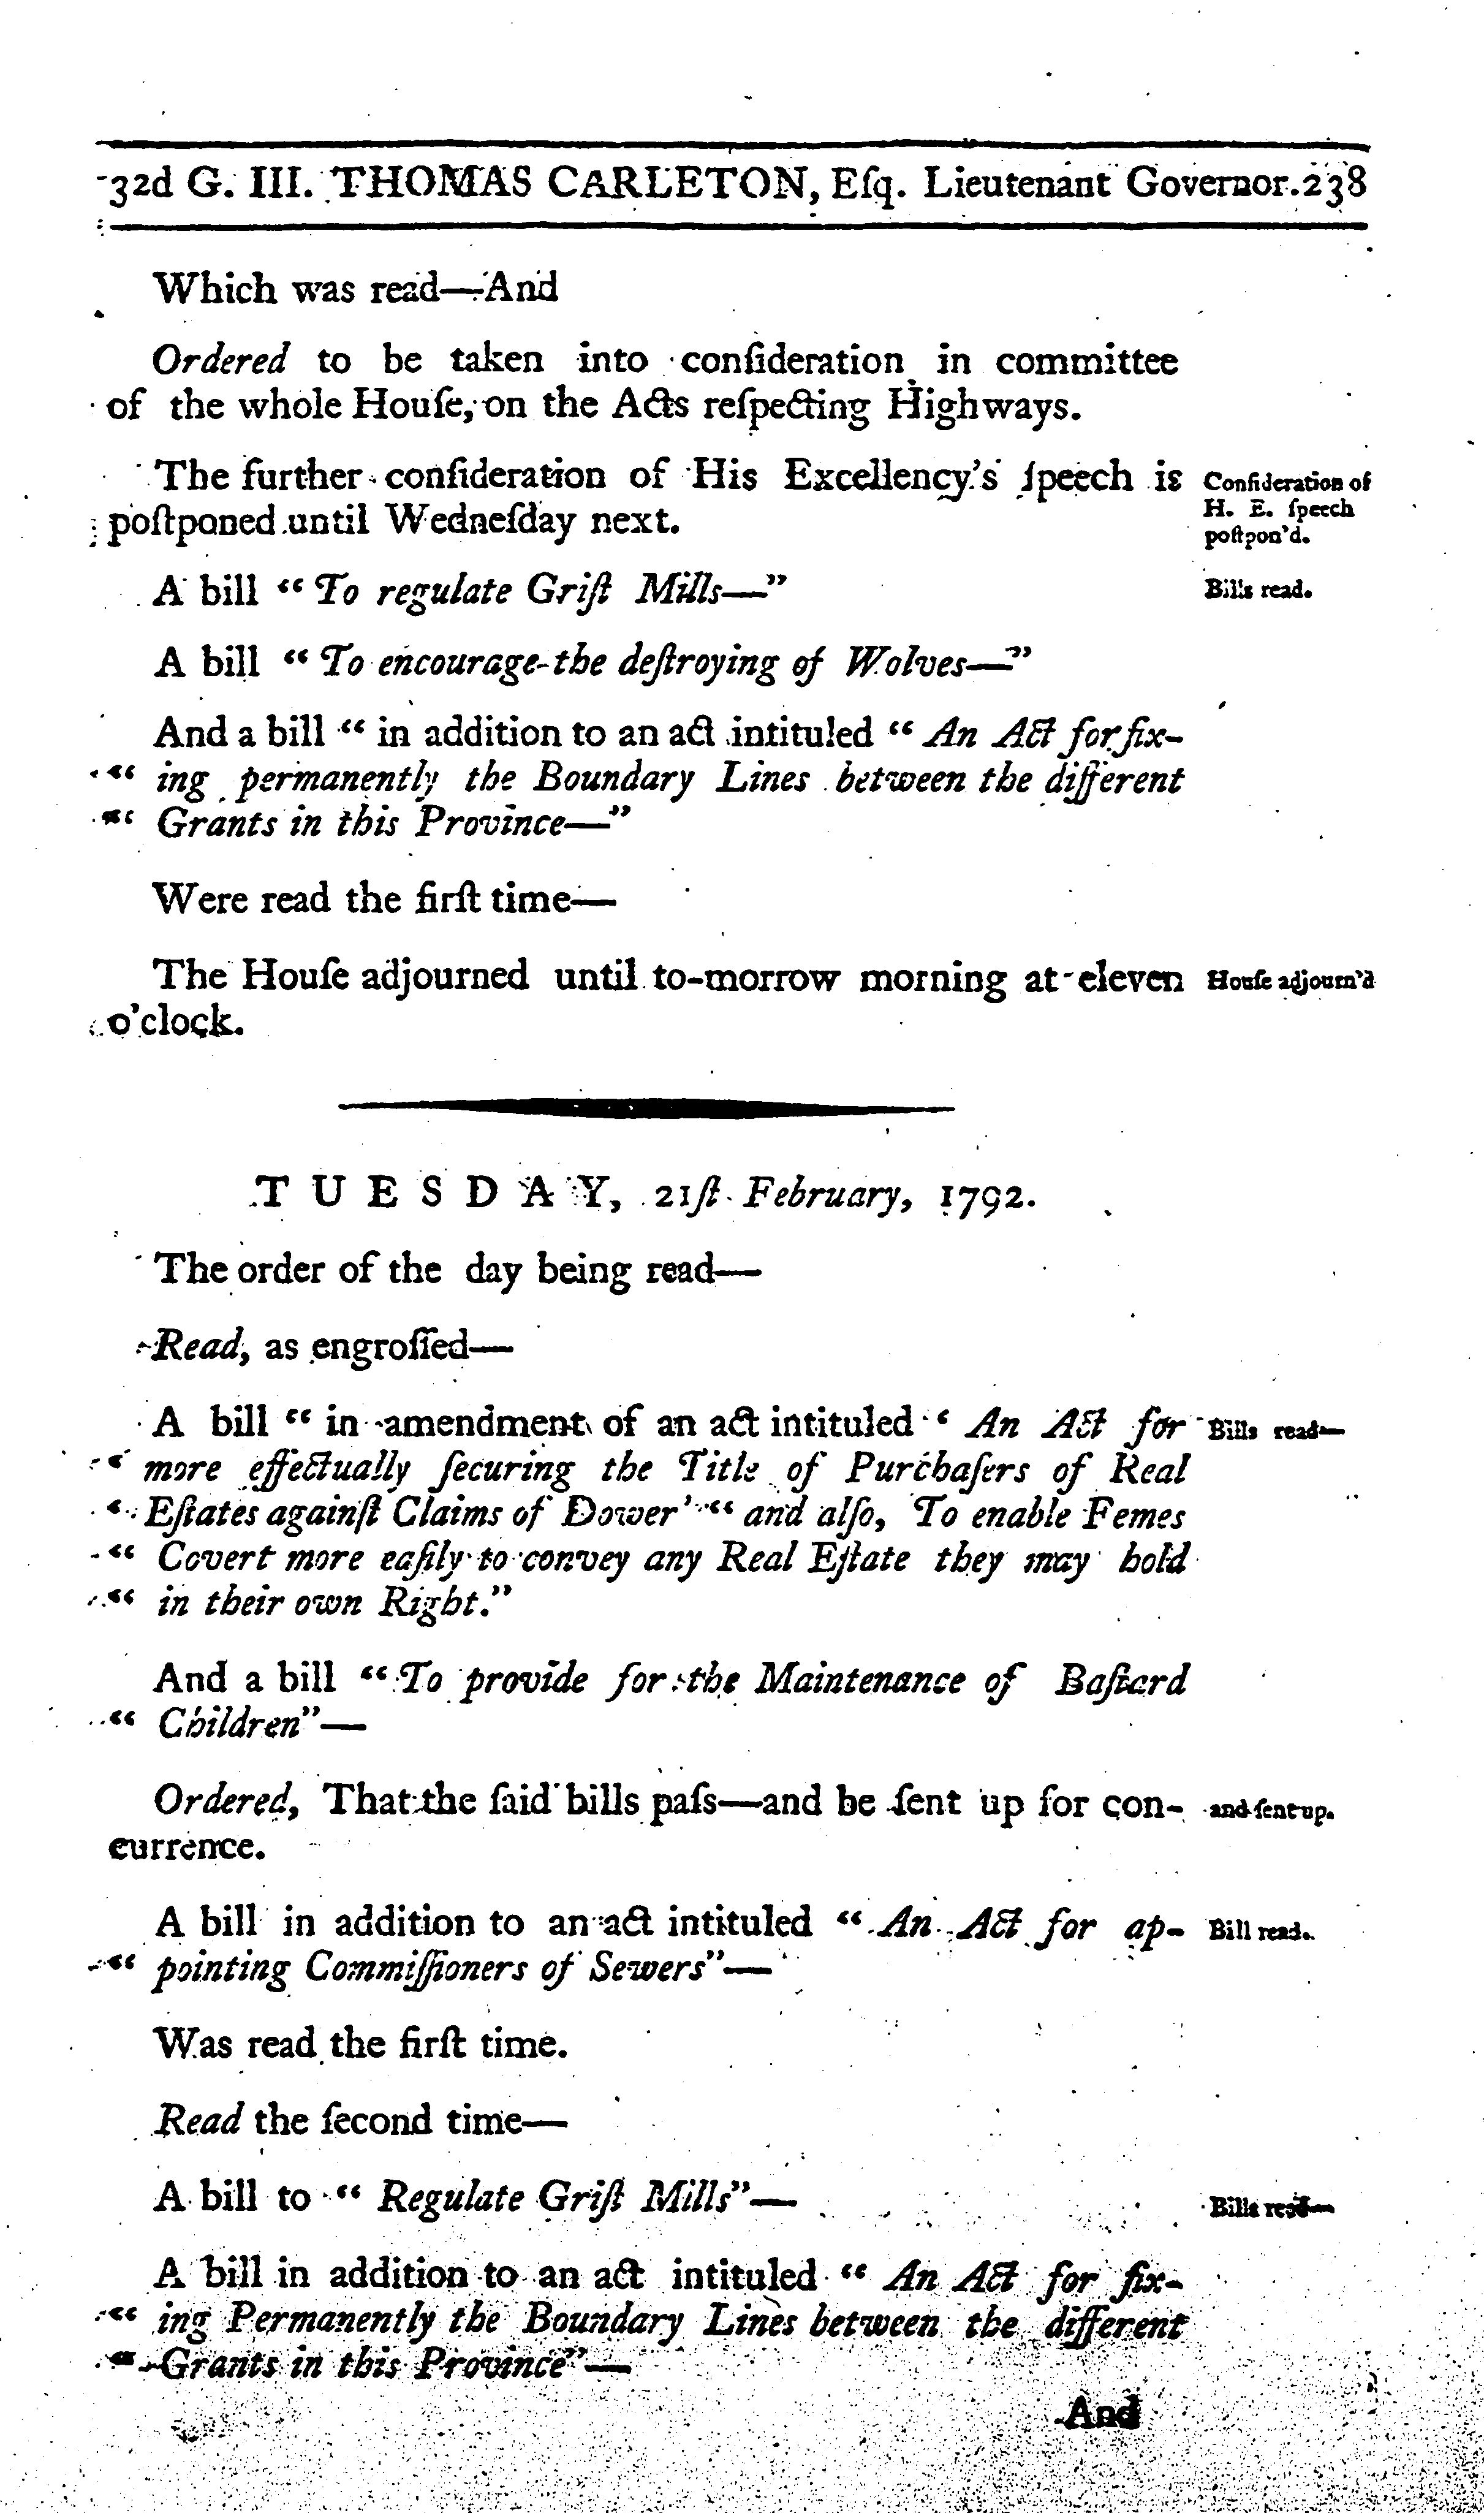 32d G. III. THOMAS CARLETON, Eſq. Lieutenant Governor. 238
Which was read—And
Ordered to be taken into conſideration in committee
of the whole Houſe, on the Acts reſpecting Highways.
The further conſideration of His Excellency's ſpeech is
poſtponed until Wedneſday next.
Conſideration of
H. E. ſpeech
poſtpon'd.
A bill “ To regulate Griſt Mills—”
Bills read.
A bill “ To encourage the deſtroying of Wolves—”
And a bill “ in addition to an act intituled “ An Act for fix-
“ ing permanently the Boundary Lines between the different
“ Grants in this Province—”
Were read the firſt time—
The Houſe adjourned until to-morrow morning at eleven
o'clock.
Houſe adjourn'd
TUESDAY, 21ſt February, 1792.
The order of the day being read—
Read, as engroſſed—
A bill “ in amendment of an act intituled ‘ An Act for
‘ more effectually ſecuring the Title of Purchaſers of Real
‘ Eſtates againſt Claims of Dower’ “ and alſo, To enable Femes
“ Covert more eaſily to convey any Real Eſtate they may hold
“ in their own Right.”
Bills read—
And a bill “ To provide for the Maintenance of Baſtard
“ Children”—
Ordered, That the ſaid bills paſs—and be ſent up for con-
currence.
and ſent up.
A bill in addition to an act intituled “ An Act for ap-
“ pointing Commiſſioners of Sewers”—
Bill read.
Was read the firſt time.
Read the ſecond time—
A bill to “ Regulate Griſt Mills”—
Bills read—
A bill in addition to an act intituled “ An Act for fix-
“ ing Permanently the Boundary Lines between the different
“ Grants in this Province”—
And